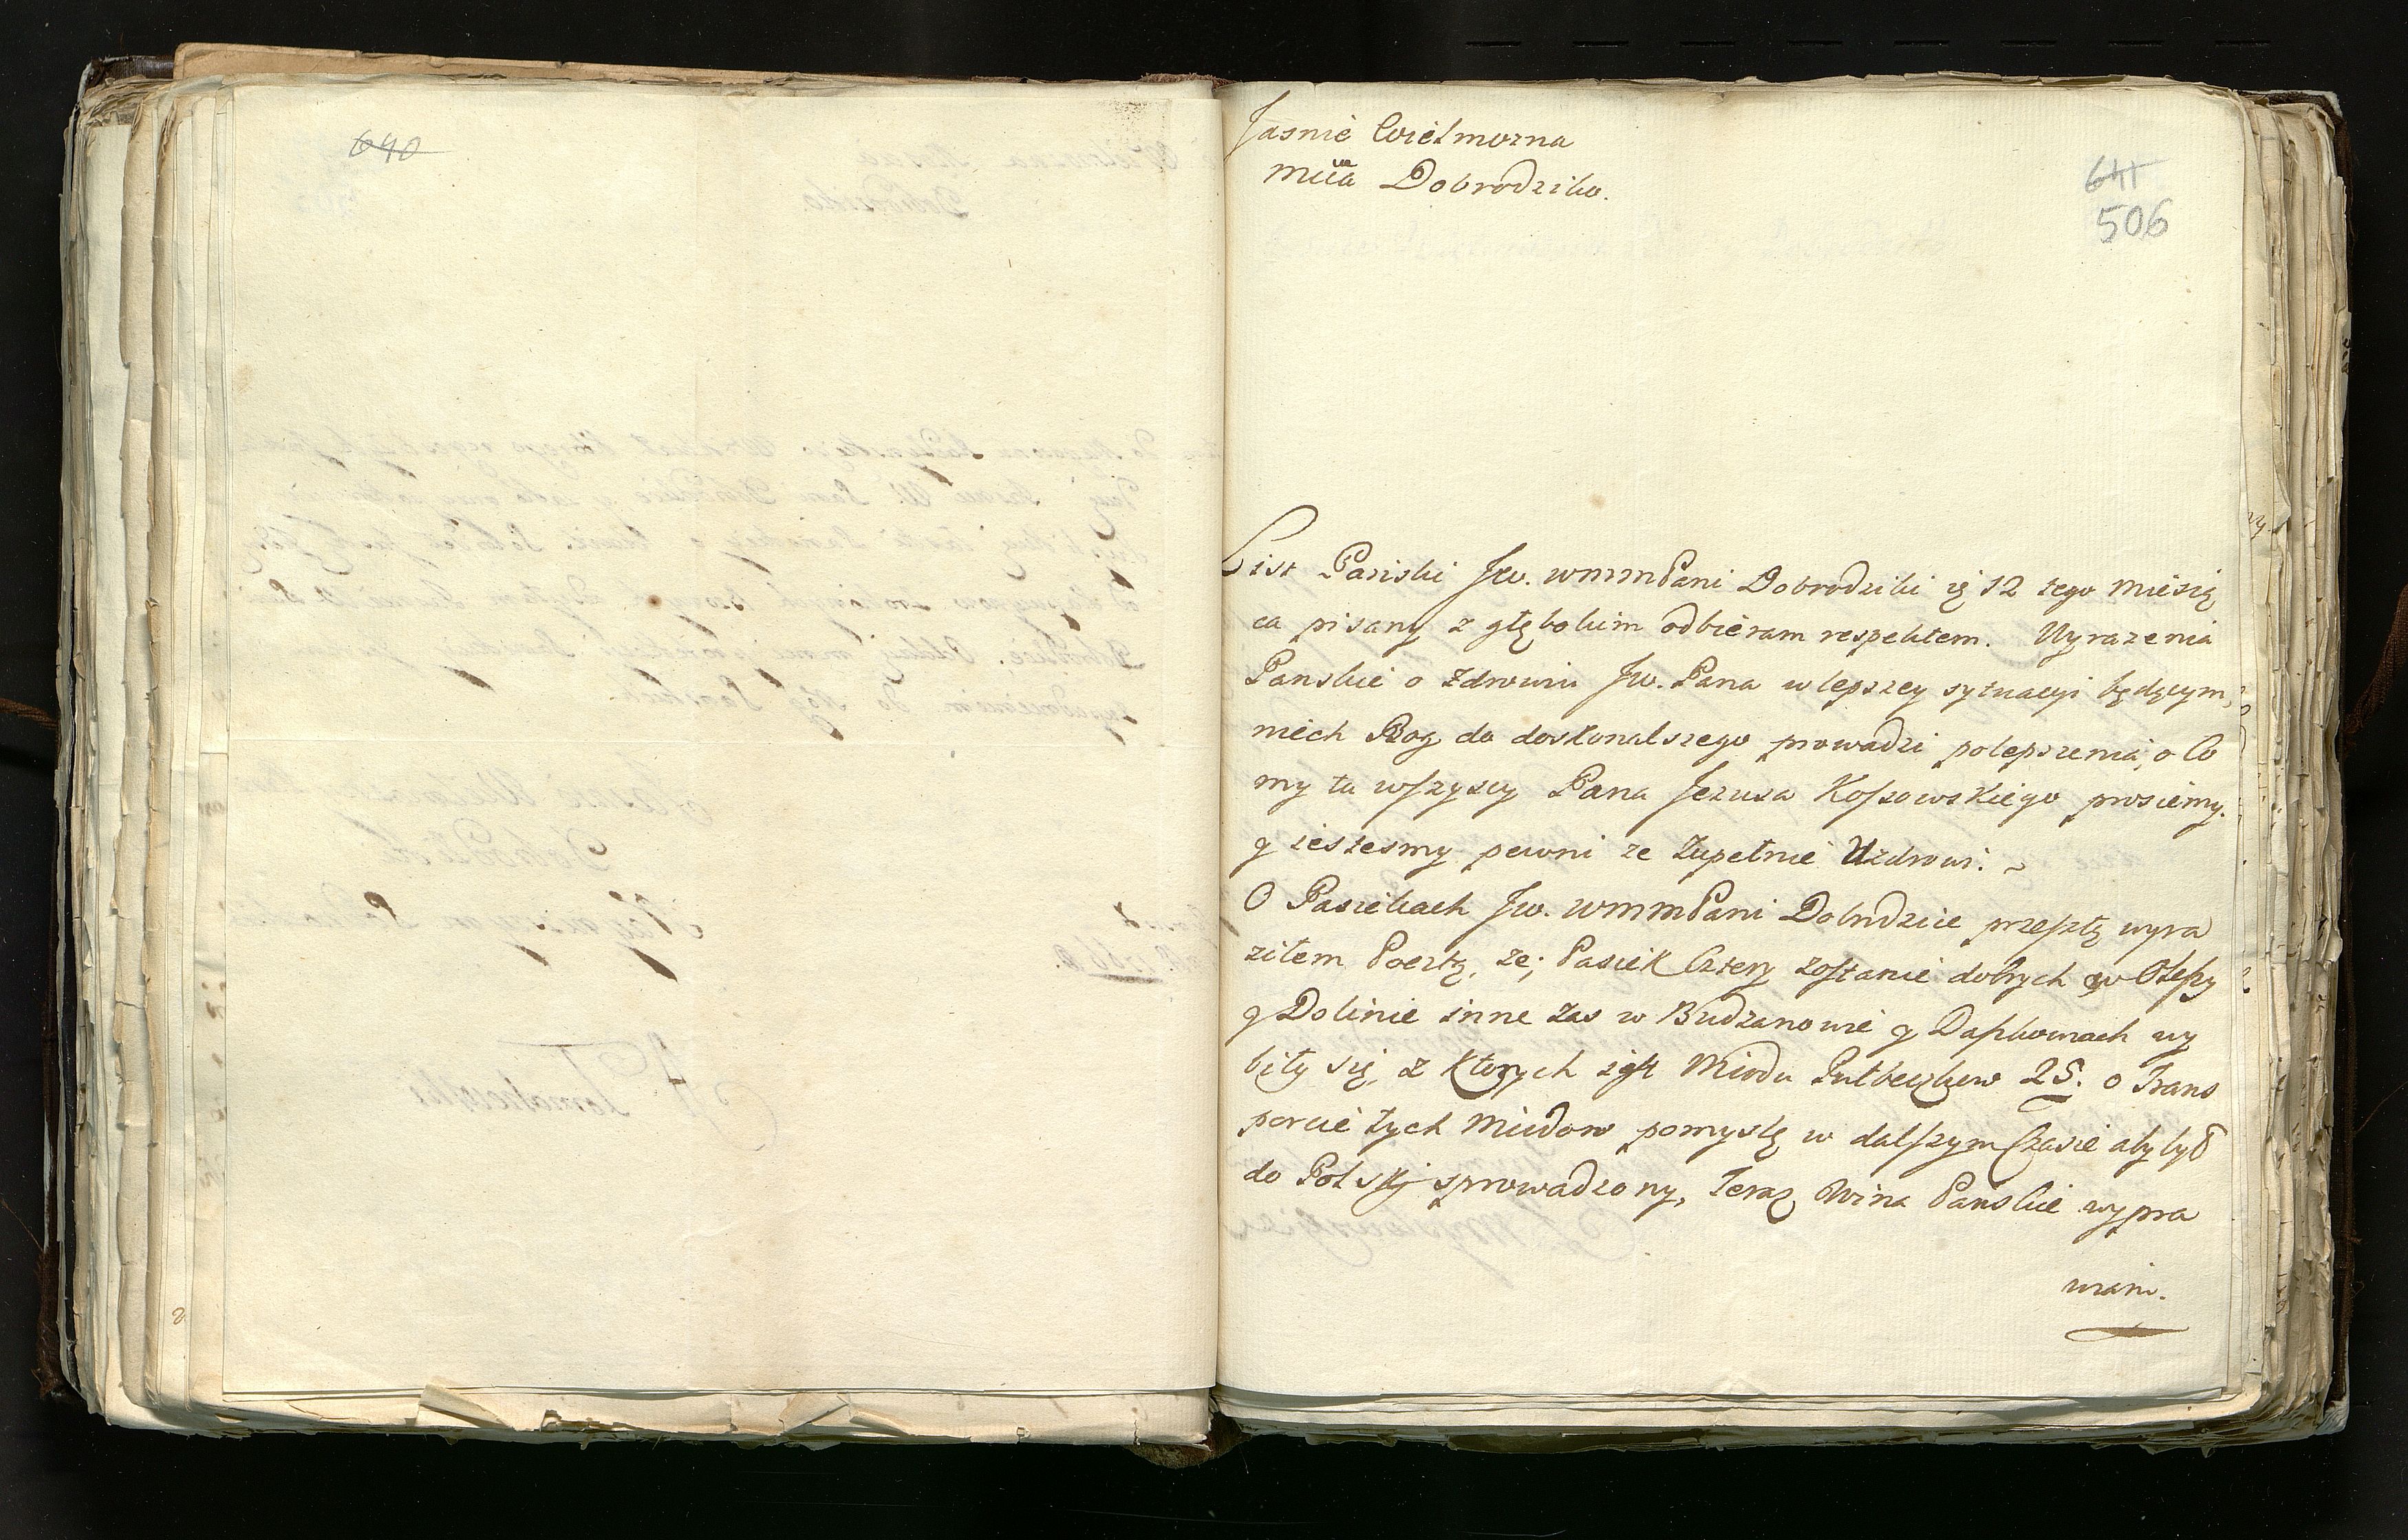 640
Jasnie Wielmozna
Mcia Dobrodziko.
641
506
List Panski Jw. wmmPani Dobrodziki ię 12 tego Miesią
ca pisany z głębokim odbieram respektem. Wyrazenia
Panskie o zdrowiu Jw. Pana w lepszey sytuacyi będącym,
niech Bog do doskonalszego prowadzi polepszenia, o Co
my tu wszyscy Pana Jezusa Kossowskiego prosiemy.
y jestesmy pewni ze Zupełnie Uzdrowi.
O Pasiekach Jw. wmmPani Dobrdzice przeszłą wyra
ziłem Pocztą, ze; Pasiek Cztery zostanie dobrych w
y Dolinie inne zas w Budzanowie y wy
biły się, z Ktorych iest Miodu Pułbeczkow 25. o Trans
porcie tych Miodow pomyslę w dalszym Czasie aby był
do Polskj sprowadzony, Teraz Wina Panskie wypra
wiam.